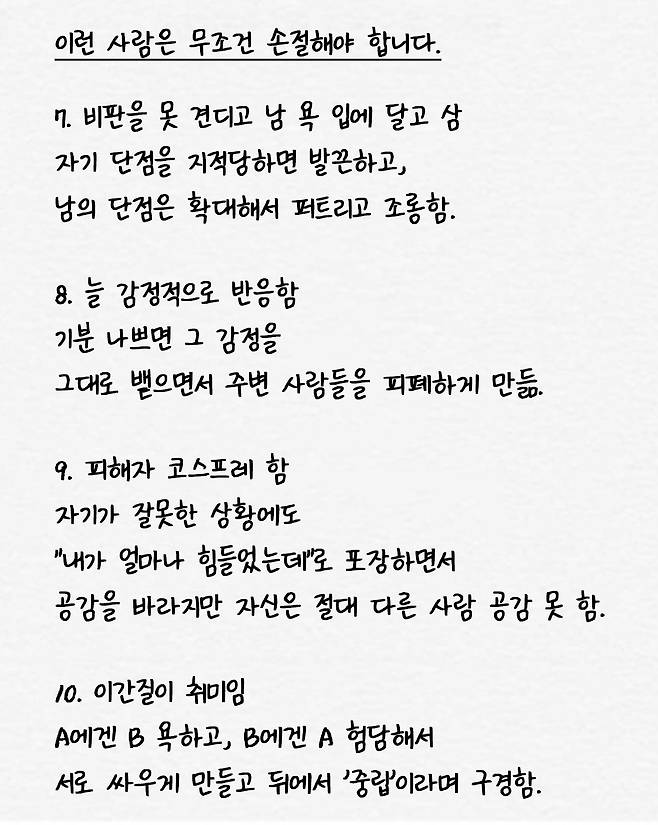 이런 사람은 무조건 손절해야 합니다.
7. 비판을 못 견디고 남 욕 입에 달고 삼
자기 단점을 지적당하면 발끈하고,
남의 단점은 확대해서 퍼트리고 조롱함.
8. 늘 감정적으로 반응함
기분 나쁘면 그 감정을
그대로 뱉으면서 주변 사람들을 피폐하게 만듦.
9. 피해자 코스프레 함
자기가 잘못한 상황에도
"내가 얼마나 힘들었는데"로 포장하면서
공감을 바라지만 자신은 절대 다른 사람 공감 못 함.
10. 이간질이 취미임
A에겐 B 욕하고, B에겐 A 험담해서
서로 싸우게 만들고 뒤에서 '중립'이라며 구경함.